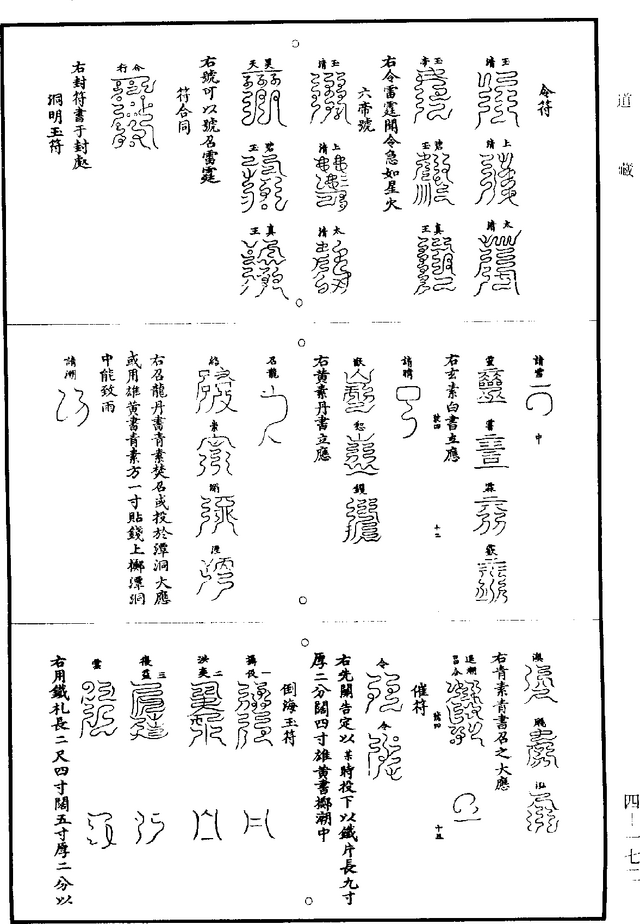 道藏
令符
玉清
上清
太清
玉帝
碧玉
真王
右令雷霆開令急如星火
六帝號
玉清
上清
太清
昊天
碧玉
真王
右號可以號召雷霆
符合同
令行
右封符書于封處
洞明玉符
請雷
中
靈
霖
右玄素白書立應
號四
十二
請晴
右黃素丹書立應
召龍
右召龍丹書青素焚召或投於潭洞大應
或用雄黃書青素方一寸貼錢上擲潭洞
中能致雨
請潮
右青素青書召之大應
號四
十三
催符
令
令
右先開告定以某時投下以鐵片長九寸
厚二分闊四寸雄黃書擲潮中
倒海玉符
一
二
三
雲
右用鐵札長二尺四寸闊五寸厚二分以
四—一七二